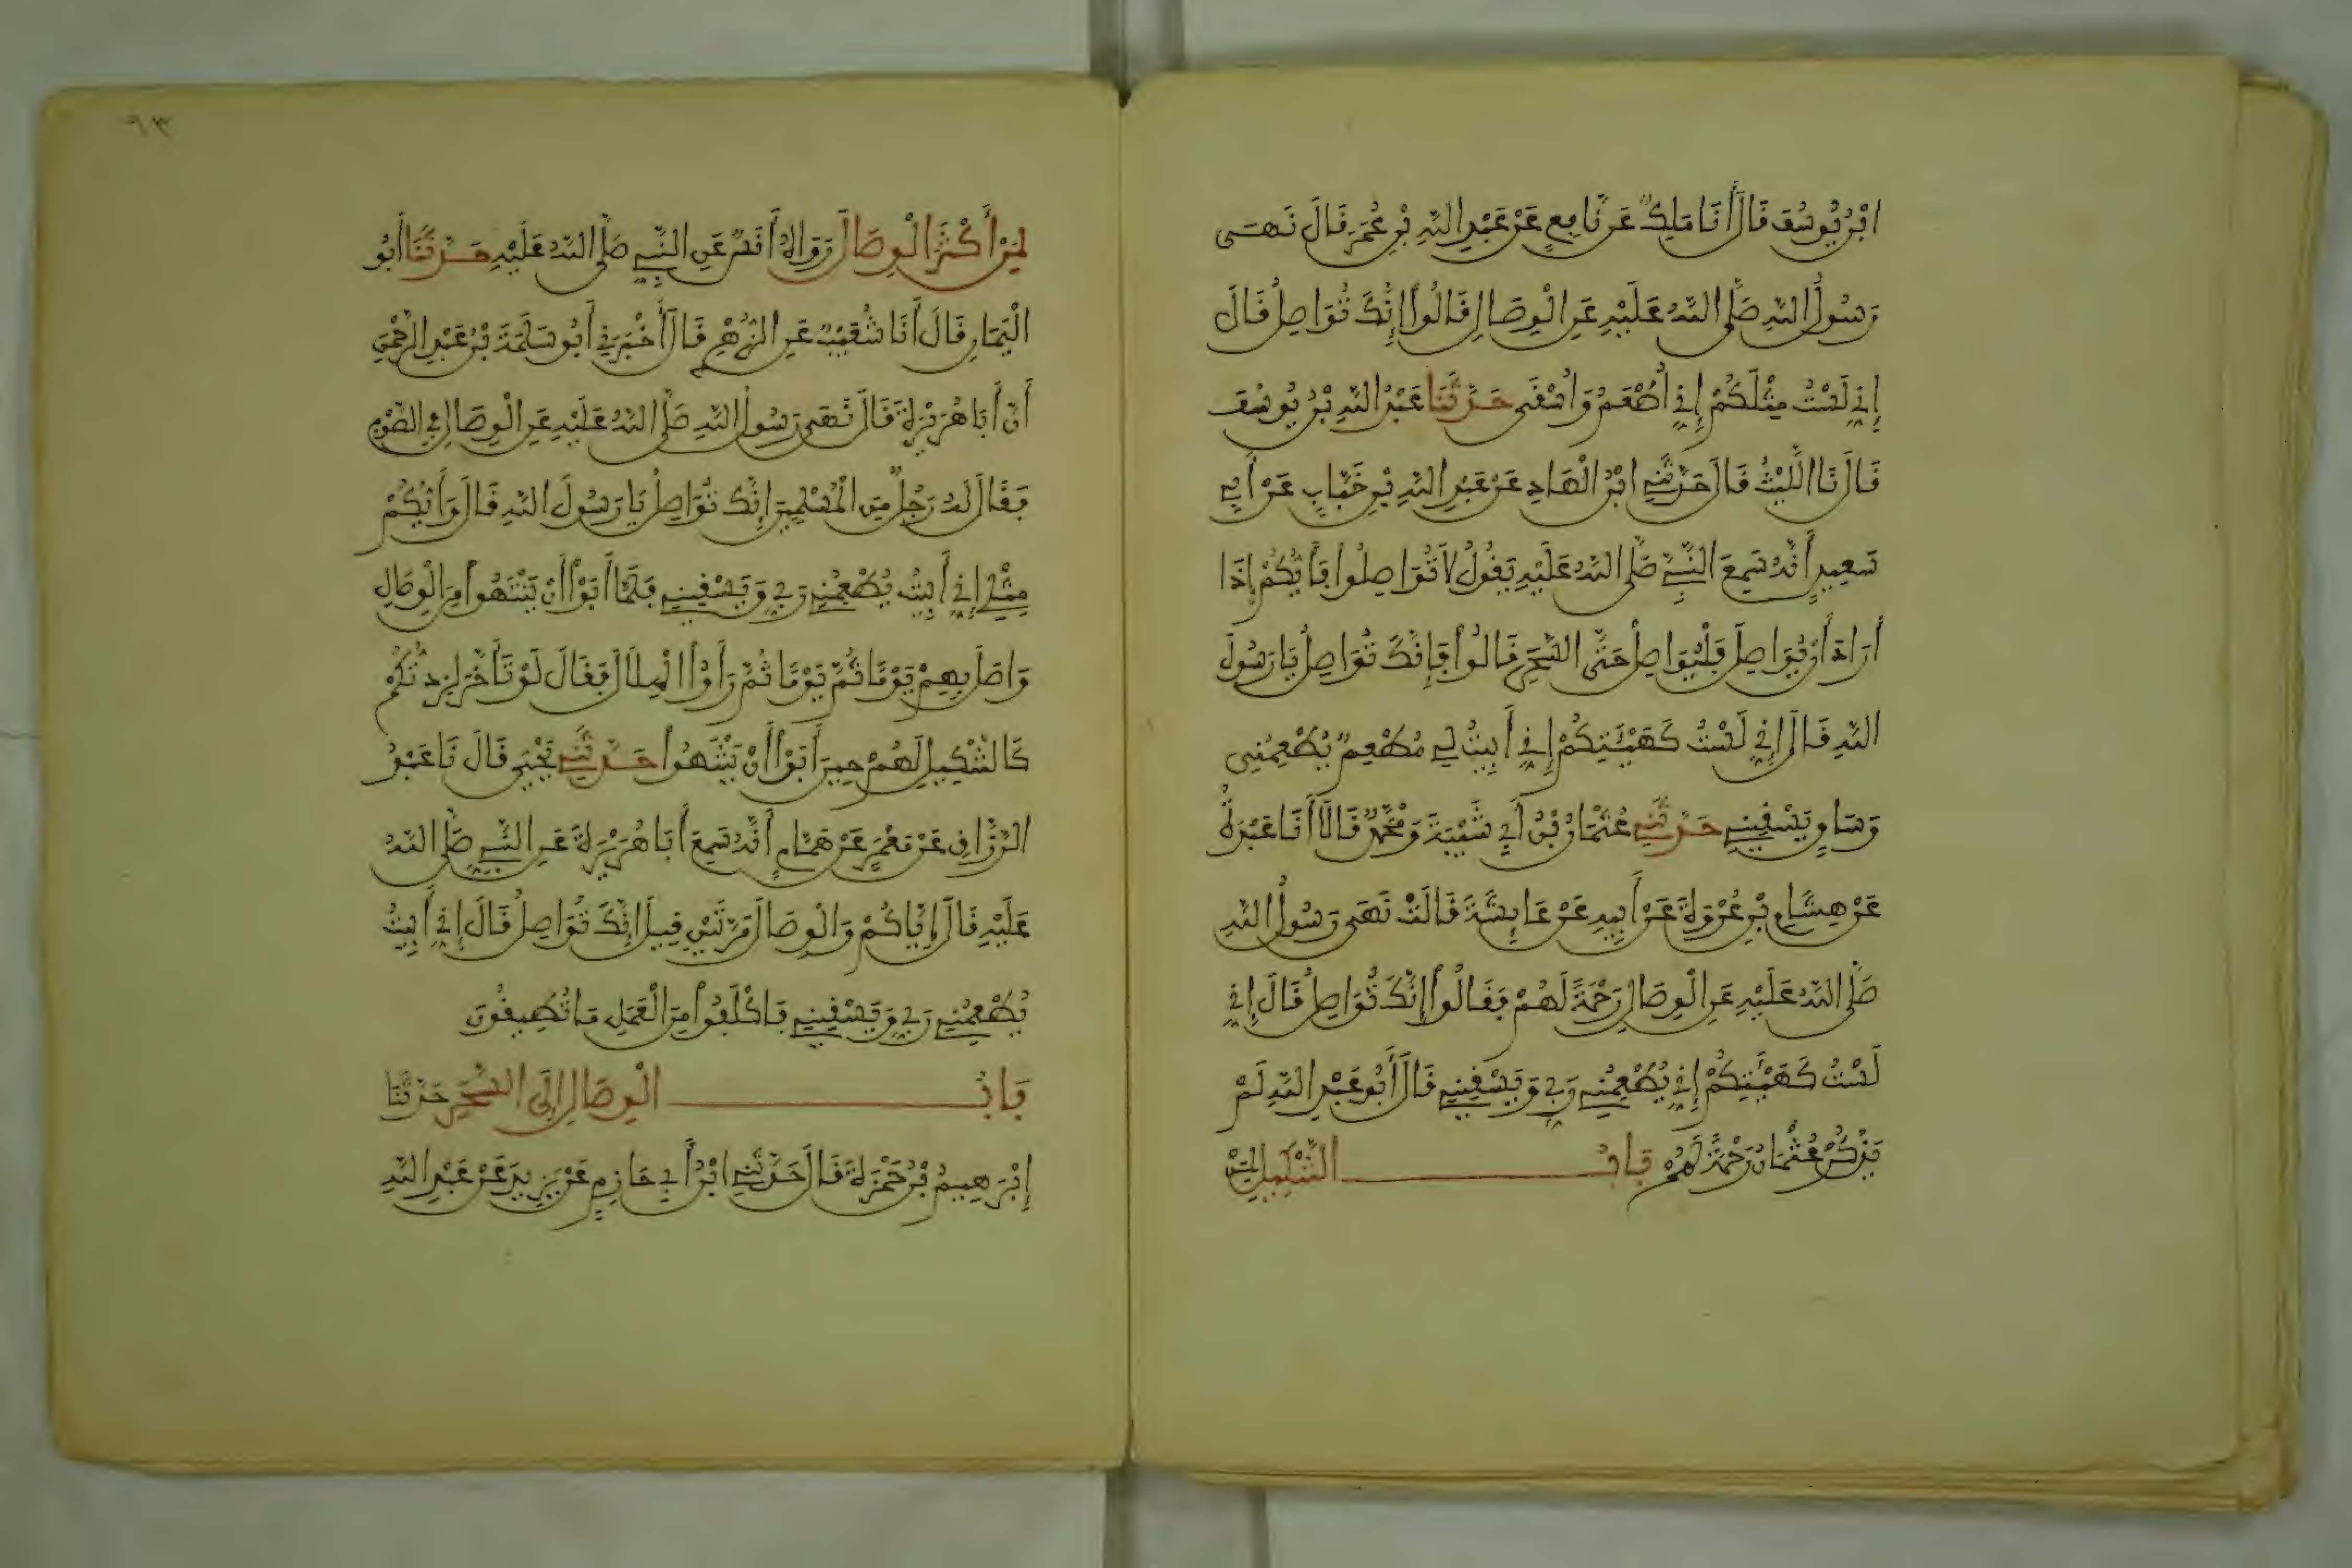 ابْنُ يُوسُفَ قَالَ أَنَا مَلِكٌ عَنْ نَافِعٍ عَنْ عَبْدِ اللَّهِ بْنِ عُمَرَ قَالَ نَهَى
رَسُولُ اللَّهِ صَلَّى اللَّهُ عَلَيْهِ عَنِ الْوِصَالِ قَالُوا إِنَّكَ تُوَاصِلُ قَالَ
إِنِّي لَسْتُ مِثْلَكُمْ إِنِّي أُطْعَمُ وَأُسْقَى حَدَّثَنَا عَبْدُ اللَّهِ بْنُ يُوسُفَ
قَالَ نَا اللَّيْثُ قَالَ حَدَّثَنِي ابْنُ الْهَادِ عَنْ عَبْدِ اللَّهِ بْنِ خَبَّابٍ عَنْ أَبِي
سَعِيدٍ أَنَّهُ سَمِعَ النَّبِيَّ صَلَّى اللَّهُ عَلَيْهِ يَقُولُ لَا تُوَاصِلُوا فَأَيُّكُمْ إِذَا
أَرَادَ أَنْ يُوَاصِلَ فَلْيُوَاصِلْ حَتَّى السَّحَرِ قَالُوا فَإِنَّكَ تُوَاصِلُ يَا رَسُولَ
اللَّهِ قَالَ إِنِّي لَسْتُ كَهَيْئَتِكُمْ إِنِّي أَبِيتُ لِي مُطْعِمٌ يُطْعِمُنِي
وَسَاقٍ يَسْقِينِي حَدَّثَنِي عُثْمَانُ بْنُ أَبِي شَيْبَةَ وَمُحَمَّدٌ قَالَا أَنَا عَبْدَةُ
عَنْ هِشَامِ بْنِ عُرْوَةَ عَنْ أَبِيهِ عَنْ عَايِشَةَ قَالَتْ نَهَى رَسُولُ اللَّهِ
صَلَّى اللَّهُ عَلَيْهِ عَنِ الْوِصَالِ رَحْمَةً لَهُمْ فَقَالُوا إِنَّكَ تُوَاصِلُ قَالَ إِنِّي
لَسْتُ كَهَيْئَتِكُمْ إِنِّي يُطْعِمُنِي رَبِّي وَيَسْقِينِي قَالَ أَبُو عَبْدِ اللَّهِ لَمْ
يَذْكُرْ عُثْمَانُ رَحْمَةً لَهُمْ بَابُ التَّنْكِيلِ
لِمَنْ أَكْثَرَ الْوِصَالَ رَوَاهُ أَنَسٌ عَنِ النَّبِيِّ صَلَّى اللَّهُ عَلَيْهِ حَدَّثَنَا أَبُو
الْيَمَانِ قَالَ أَنَا شُعَيْبٌ عَنِ الزُّهْرِيِّ قَالَ أَخْبَرَنِي أَبُو سَلَمَةَ بْنُ عَبْدِ الرَّحْمَنِ
أَنَّ أَبَا هُرَيْرَةَ قَالَ نَهَى رَسُولُ اللَّهِ صَلَّى اللَّهُ عَلَيْهِ عَنِ الْوِصَالِ فِي الصَّوْمِ
فَقَالَ لَهُ رَجُلٌ مِنَ الْمُسْلِمِينَ إِنَّكَ تُوَاصِلُ يَا رَسُولَ اللَّهِ قَالَ وَأَيُّكُمْ
مِثْلِي إِنِّي أَبِيتُ يُطْعِمُنِي رَبِّي وَيَسْقِينِي فَلَمَّا أَبَوْا أَنْ يَنْتَهُوا مِنَ الْوِصَالِ
وَاصَلَ بِهِمْ يَوْمًا ثُمَّ يَوْمًا ثُمَّ رَأَوْا الْهِلَالَ فَقَالَ لَوْ تَأَخَّرَ لَزِدتُّكُمْ
كَالتَّنْكِيلِ لَهُمْ حِينَ أَبَوْا أَنْ يَنْتَهُوا حَدَّثَنِي يَحْيَى قَالَ نَا عَبْدُ
الرَّزَّاقِ عَنْ مَعْمَرٍ عَنْ هَمَّامٍ أَنَّهُ سَمِعَ أَبَا هُرَيْرَةَ عَنِ النَّبِيِّ صَلَّى اللَّهُ
عَلَيْهِ قَالَ إِيَّاكُمْ وَالْوِصَالَ مَرَّتَيْنِ قِيلَ إِنَّكَ تُوَاصِلُ قَالَ إِنِّي أَبِيتُ
يُطْعِمُنِي رَبِّي وَيَسْقِينِي فَاكْلَفُوا مِنَ الْعَمَلِ مَا تُطِيقُونَ
بَابُ الْوِصَالِ إِلَى السَّحَرِ حَدَّثَنَا
إِبْرَهِيمُ بْنُ حَمْزَةَ قَالَ حَدَّثَنِي ابْنُ أَبِي حَازِمٍ عَنْ يَزِيدَ عَنْ عَبْدِ اللَّهِ